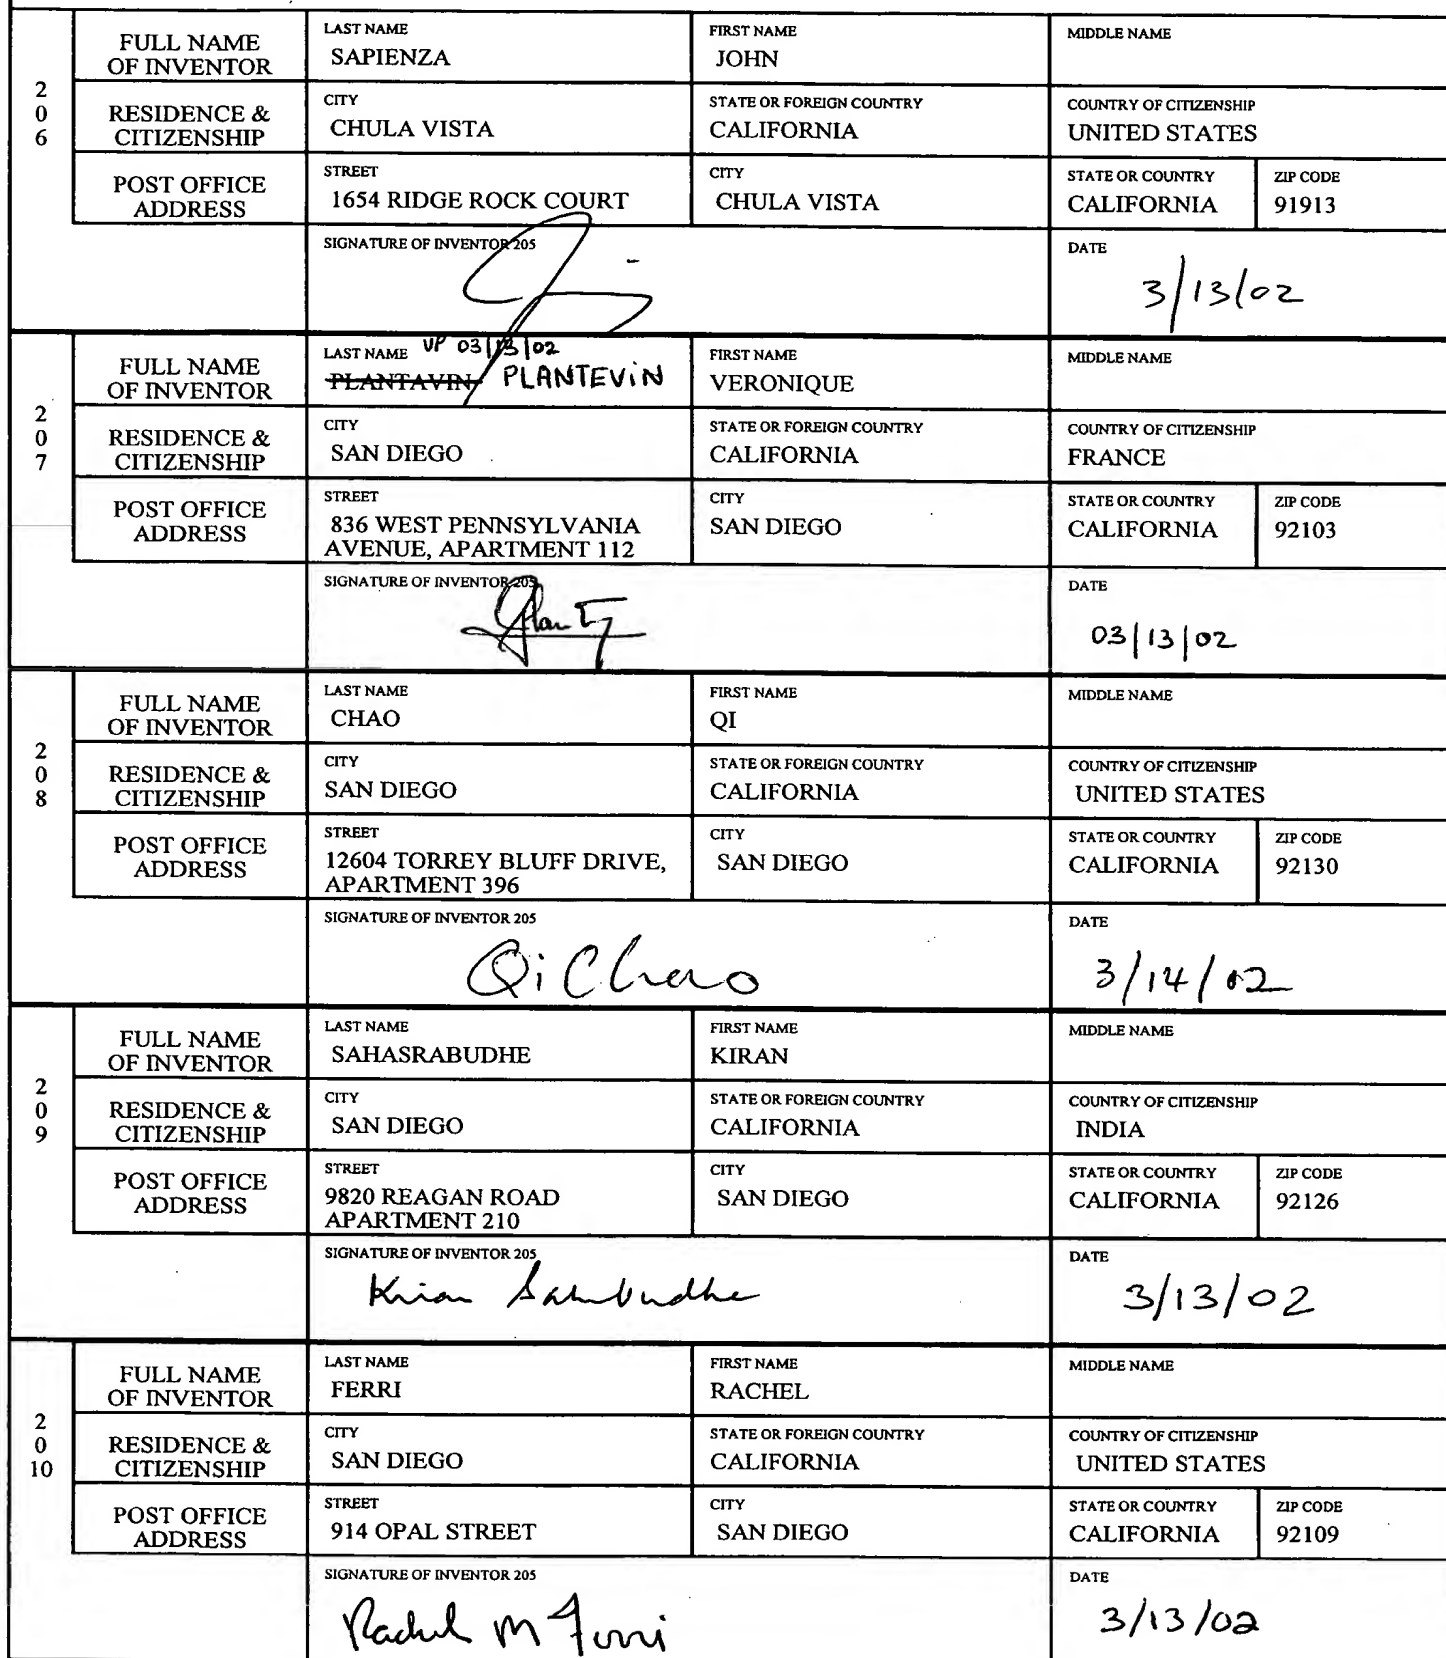 2 0 6
FULL NAME OF INVENTOR
LAST NAME
SAPIENZA
FIRST NAME
JOHN
MIDDLE NAME
RESIDENCE & CITIZENSHIP
CITY
CHULA VISTA
STATE OR FOREIGN COUNTRY
CALIFORNIA
COUNTRY OF CITIZENSHIP
UNITED STATES
POST OFFICE ADDRESS
STREET
1654 RIDGE ROCK COURT
CITY
CHULA VISTA
STATE OR COUNTRY
CALIFORNIA
ZIP CODE
91913
SIGNATURE OF INVENTOR 205
DATE
3/13/02
2 0 7
FULL NAME OF INVENTOR
LAST NAME VP 03/13/02
PLANTAVIN PLANTEVIN
FIRST NAME
VERONIQUE
MIDDLE NAME
RESIDENCE & CITIZENSHIP
CITY
SAN DIEGO
STATE OR FOREIGN COUNTRY
CALIFORNIA
COUNTRY OF CITIZENSHIP
FRANCE
POST OFFICE ADDRESS
STREET
836 WEST PENNSYLVANIA
AVENUE, APARTMENT 112
CITY
SAN DIEGO
STATE OR COUNTRY
CALIFORNIA
ZIP CODE
92103
SIGNATURE OF INVENTOR 205
DATE
03/13/02
2 0 8
FULL NAME OF INVENTOR
LAST NAME
CHAO
FIRST NAME
QI
MIDDLE NAME
RESIDENCE & CITIZENSHIP
CITY
SAN DIEGO
STATE OR FOREIGN COUNTRY
CALIFORNIA
COUNTRY OF CITIZENSHIP
UNITED STATES
POST OFFICE ADDRESS
STREET
12604 TORREY BLUFF DRIVE,
APARTMENT 396
CITY
SAN DIEGO
STATE OR COUNTRY
CALIFORNIA
ZIP CODE
92130
SIGNATURE OF INVENTOR 205
Qi Chao
DATE
3/14/02
2 0 9
FULL NAME OF INVENTOR
LAST NAME
SAHASRABUDHE
FIRST NAME
KIRAN
MIDDLE NAME
RESIDENCE & CITIZENSHIP
CITY
SAN DIEGO
STATE OR FOREIGN COUNTRY
CALIFORNIA
COUNTRY OF CITIZENSHIP
INDIA
POST OFFICE ADDRESS
STREET
9820 REAGAN ROAD
APARTMENT 210
CITY
SAN DIEGO
STATE OR COUNTRY
CALIFORNIA
ZIP CODE
92126
SIGNATURE OF INVENTOR 205
Kiran
DATE
3/13/02
2 0 10
FULL NAME OF INVENTOR
LAST NAME
FERRI
FIRST NAME
RACHEL
MIDDLE NAME
RESIDENCE & CITIZENSHIP
CITY
SAN DIEGO
STATE OR FOREIGN COUNTRY
CALIFORNIA
COUNTRY OF CITIZENSHIP
UNITED STATES
POST OFFICE ADDRESS
STREET
914 OPAL STREET
CITY
SAN DIEGO
STATE OR COUNTRY
CALIFORNIA
ZIP CODE
92109
SIGNATURE OF INVENTOR 205
Rachel M Ferri
DATE
3/13/02